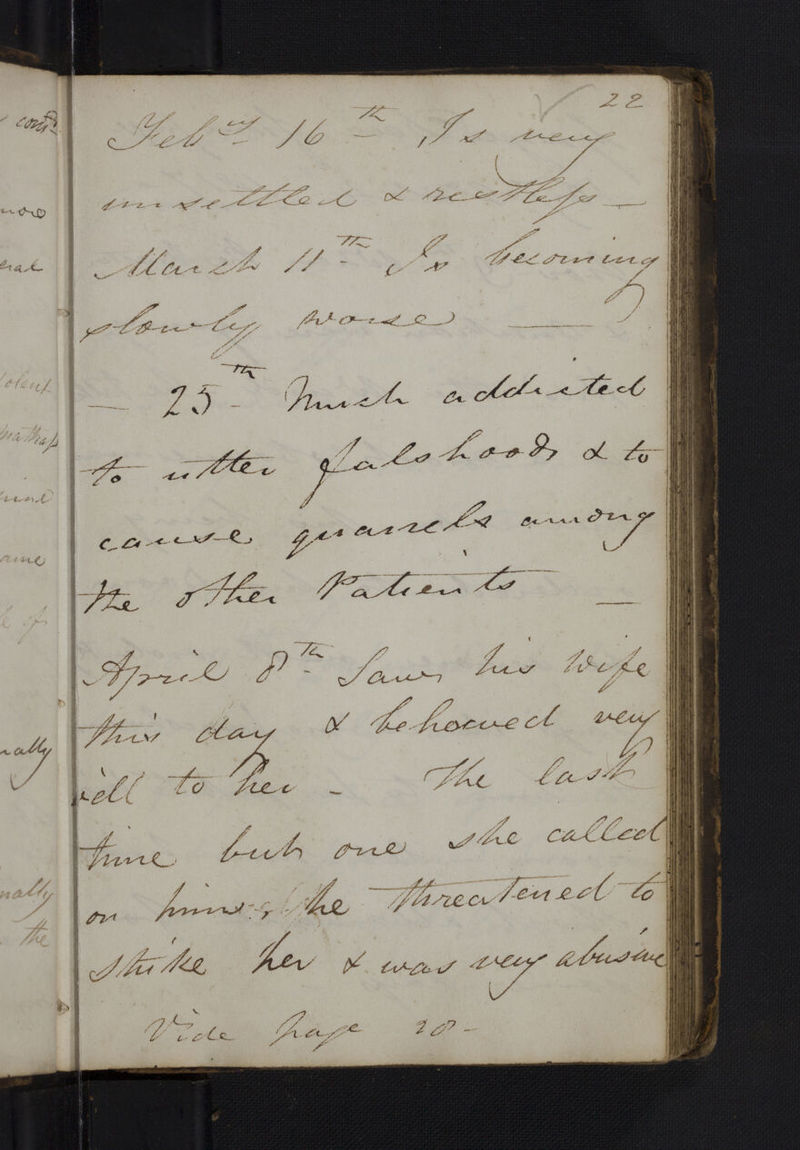 22
Feby 16th Is very
unsettled & restless —
March 11th Is becoming
slowly worse —
— 25th Much addicted
to utter falshoods & to
cause quarrels among
the other Patients —
April 8th Saw his Wife
this day & behaved very
ill to her - The last
time but one she called
on him, he threatened to
strike her & was very abusive
Vide page